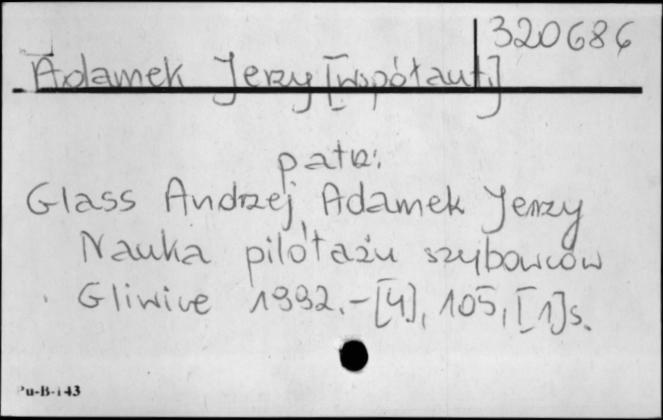 320686
Adamek Jerzy [współaut.]
patrz:
Glass Andrzej, Adamek Jerzy
Nauka pilotażu szybowców
Gliwice 1992.-[4], 105, [1]s.
Pu-B-143